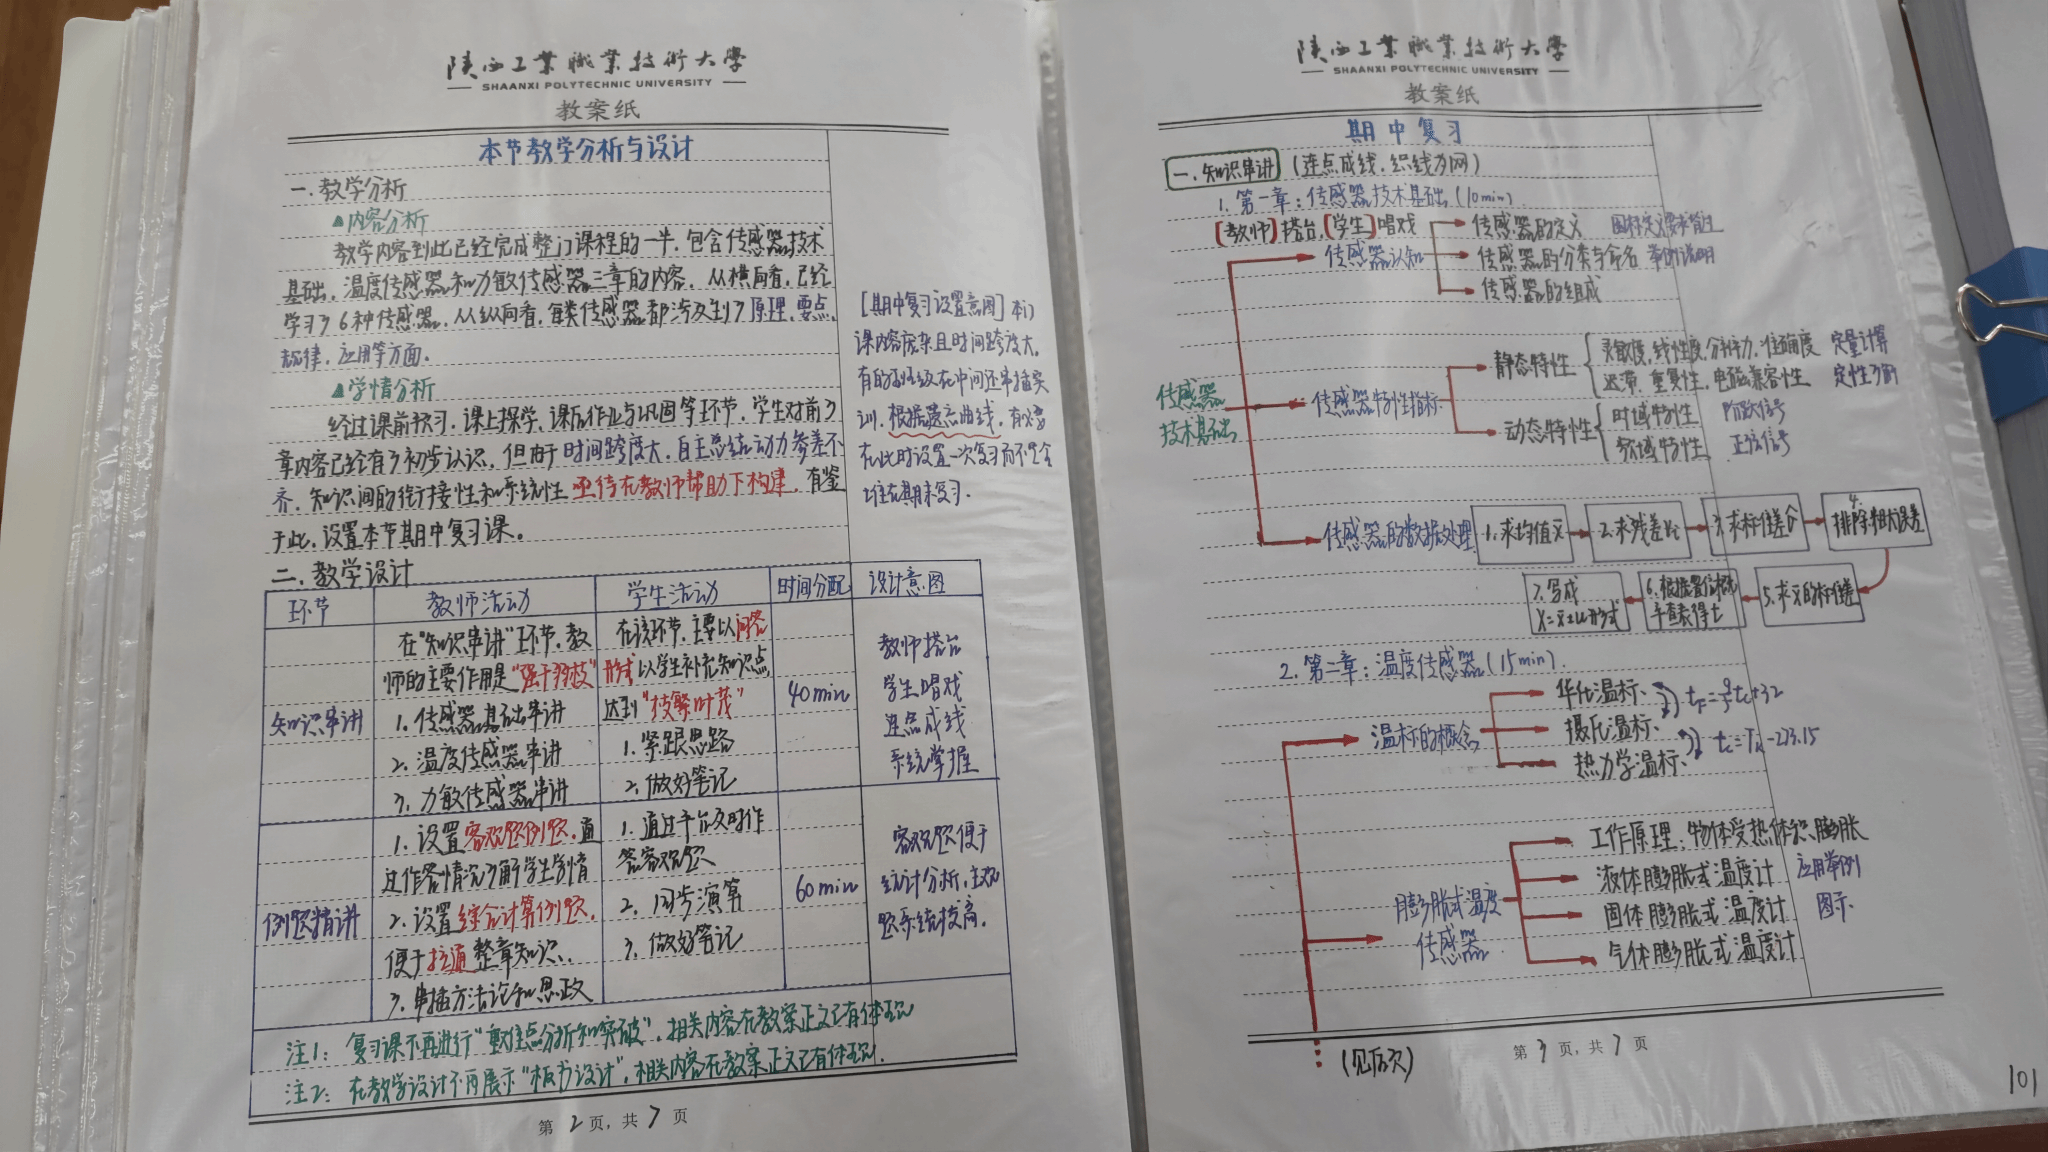 陕西工业職業技術大學
SHAANXI POLYTECHNIC UNIVERSITY
教案纸
本节教学分析与设计
一.教学分析
▲内容分析
教学内容到此已经完成整门课程的一半,包含传感器技术
基础,温度传感器和力敏传感器三章的内容.从横向看,已经
学习了6种传感器,从纵向看,每类传感器都涉及到了原理,要点,
规律,应用等方面.
▲学情分析
经过课前预习,课上探学,课后作业与巩固等环节,学生对前3
章内容已经有了初步认识,但由于时间跨度大,自主总结动力参差不
齐,知识间的衔接性和系统性亟待在教师帮助下构建,有鉴
于此,设置本节期中复习课。
[期中复习设置意图]本门
课内容庞杂且时间跨度大,
有的班级在中间还串插实
训,根据遗忘曲线,有必要
在此时设置一次复习而不是全
堆在期末复习.
二.教学设计
环节 教师活动 学生活动 时间分配 设计意图
知识串讲
在"知识串讲"环节,教
师的主要作用是"强干弱枝"
1.传感器基础串讲
2.温度传感器串讲
3.力敏传感器串讲
在该环节,主要以问答
形式以学生补充知识点,
达到"枝繁叶茂"
1.紧跟思路
2.做好笔记
40min
教师搭台
学生唱戏
连点成线
系统掌握
例题精讲
1.设置客观题例题,通
过作答情况了解学生学情
2.设置综合计算例题,
便于拉通整章知识.
3.串插方法论和思政
1.通过平台及时作
答客观题
2.同步演算
3.做好笔记
60min
客观题便于
统计分析,主观
题系统拔高.
注1:复习课不再进行"重难点分析和突破",相关内容在教案正文已有体现
注2:在教学设计不再展示"板书设计",相关内容在教案正文已有体现.
第 2 页,共 7 页
陕西工业職業技術大學
SHAANXI POLYTECHNIC UNIVERSITY
教案纸
期中复习
一.知识串讲 (连点成线.织线为网)
1.第一章:传感器技术基础(10min)
[教师]搭台,[学生]唱戏
传感器技术基础
传感器认知
传感器的定义 国标定义要求背过
传感器的分类与命名 举例说明
传感器的组成
传感器特性指标
静态特性
灵敏度,线性度,分辨力,准确度 定量计算
迟滞,重复性,电磁兼容性 定性了解
动态特性
时域特性 阶跃信号
频域特性 正弦信号
传感器的数据处理
1.求均值x̄
2.求残差υi
3.求标准差σ̂
4.排除粗大误差
5.求x̄的标准差
6.根据置信概率查表得t
7.写成X=x̄±u形式
2.第二章:温度传感器(15min).
温标的概念
华氏温标、
摄氏温标、
热力学温标、
tF=9/5tc+32
tc=Tk-273.15
膨胀式温度
传感器
工作原理:物体受热体积膨胀
液体膨胀式温度计 应用举例
固体膨胀式温度计 图示.
气体膨胀式温度计
(见后页)
第 3 页,共 7 页
101